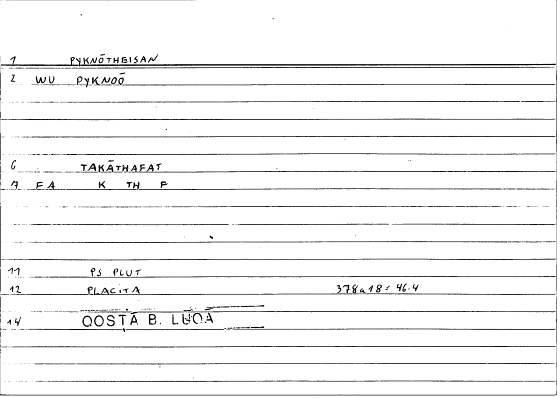 1 PYKNŌTHEISAN
2 WU PYKNOŌ
6 TAKĀTHAFAT
7 FA K TH F
11 PS PLUT
12 PLACITA 378a18 = 46.4
14 QOSṬĀ B. LŪQĀ